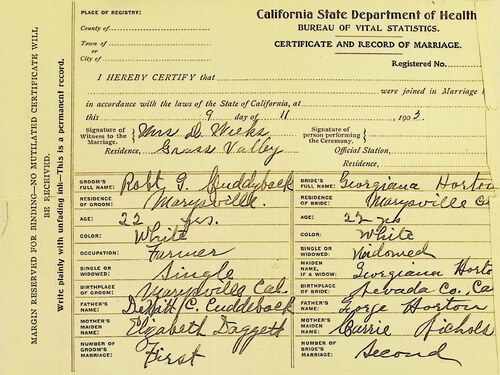 PLACE OF REGISTRY:
County of
Town of
or
City of
California State Department of Health
BUREAU OF VITAL STATISTICS.
CERTIFICATE AND RECORD OF MARRIAGE.
Registered No.
I HEREBY CERTIFY that
were joined in Marriage
in accordance with the laws of the State of California, at
this 9 day of 11 1903.
Signature of Witness to the Marriage, Mrs D. Weeks
Signature of person performing the Ceremony,
Residence, Grass Valley
Official Station,
Residence,
GROOM'S FULL NAME: Robt G. Cuddyback
BRIDE'S FULL NAME: Georgiana Horton
RESIDENCE OF GROOM: Marysville.
RESIDENCE OF BRIDE: Marysville Ca
AGE: 22 yrs.
AGE: 22 yrs
COLOR: White
COLOR: White
OCCUPATION: Farmer
SINGLE OR WIDOWED: Widowed
SINGLE OR WIDOWED: Single
MAIDEN NAME, IF A WIDOW: Georgiann Horto
BIRTHPLACE OF GROOM: Marysville Cal.
BIRTHPLACE OF BRIDE: Nevada Co. Ca
FATHER'S NAME: DeWitt C. Cuddeback
FATHER'S NAME: Gorge Horton
MOTHER'S MAIDEN NAME: Elizabeth Daggett
MOTHER'S MAIDEN NAME: Carrie Nichols
NUMBER OF GROOM'S MARRIAGE: First
NUMBER OF BRIDE'S MARRIAGE: Second
MARGIN RESERVED FOR BINDING—NO MUTILATED CERTIFICATE WILL
BE RECEIVED.
Write plainly with unfading ink—This is a permanent record.